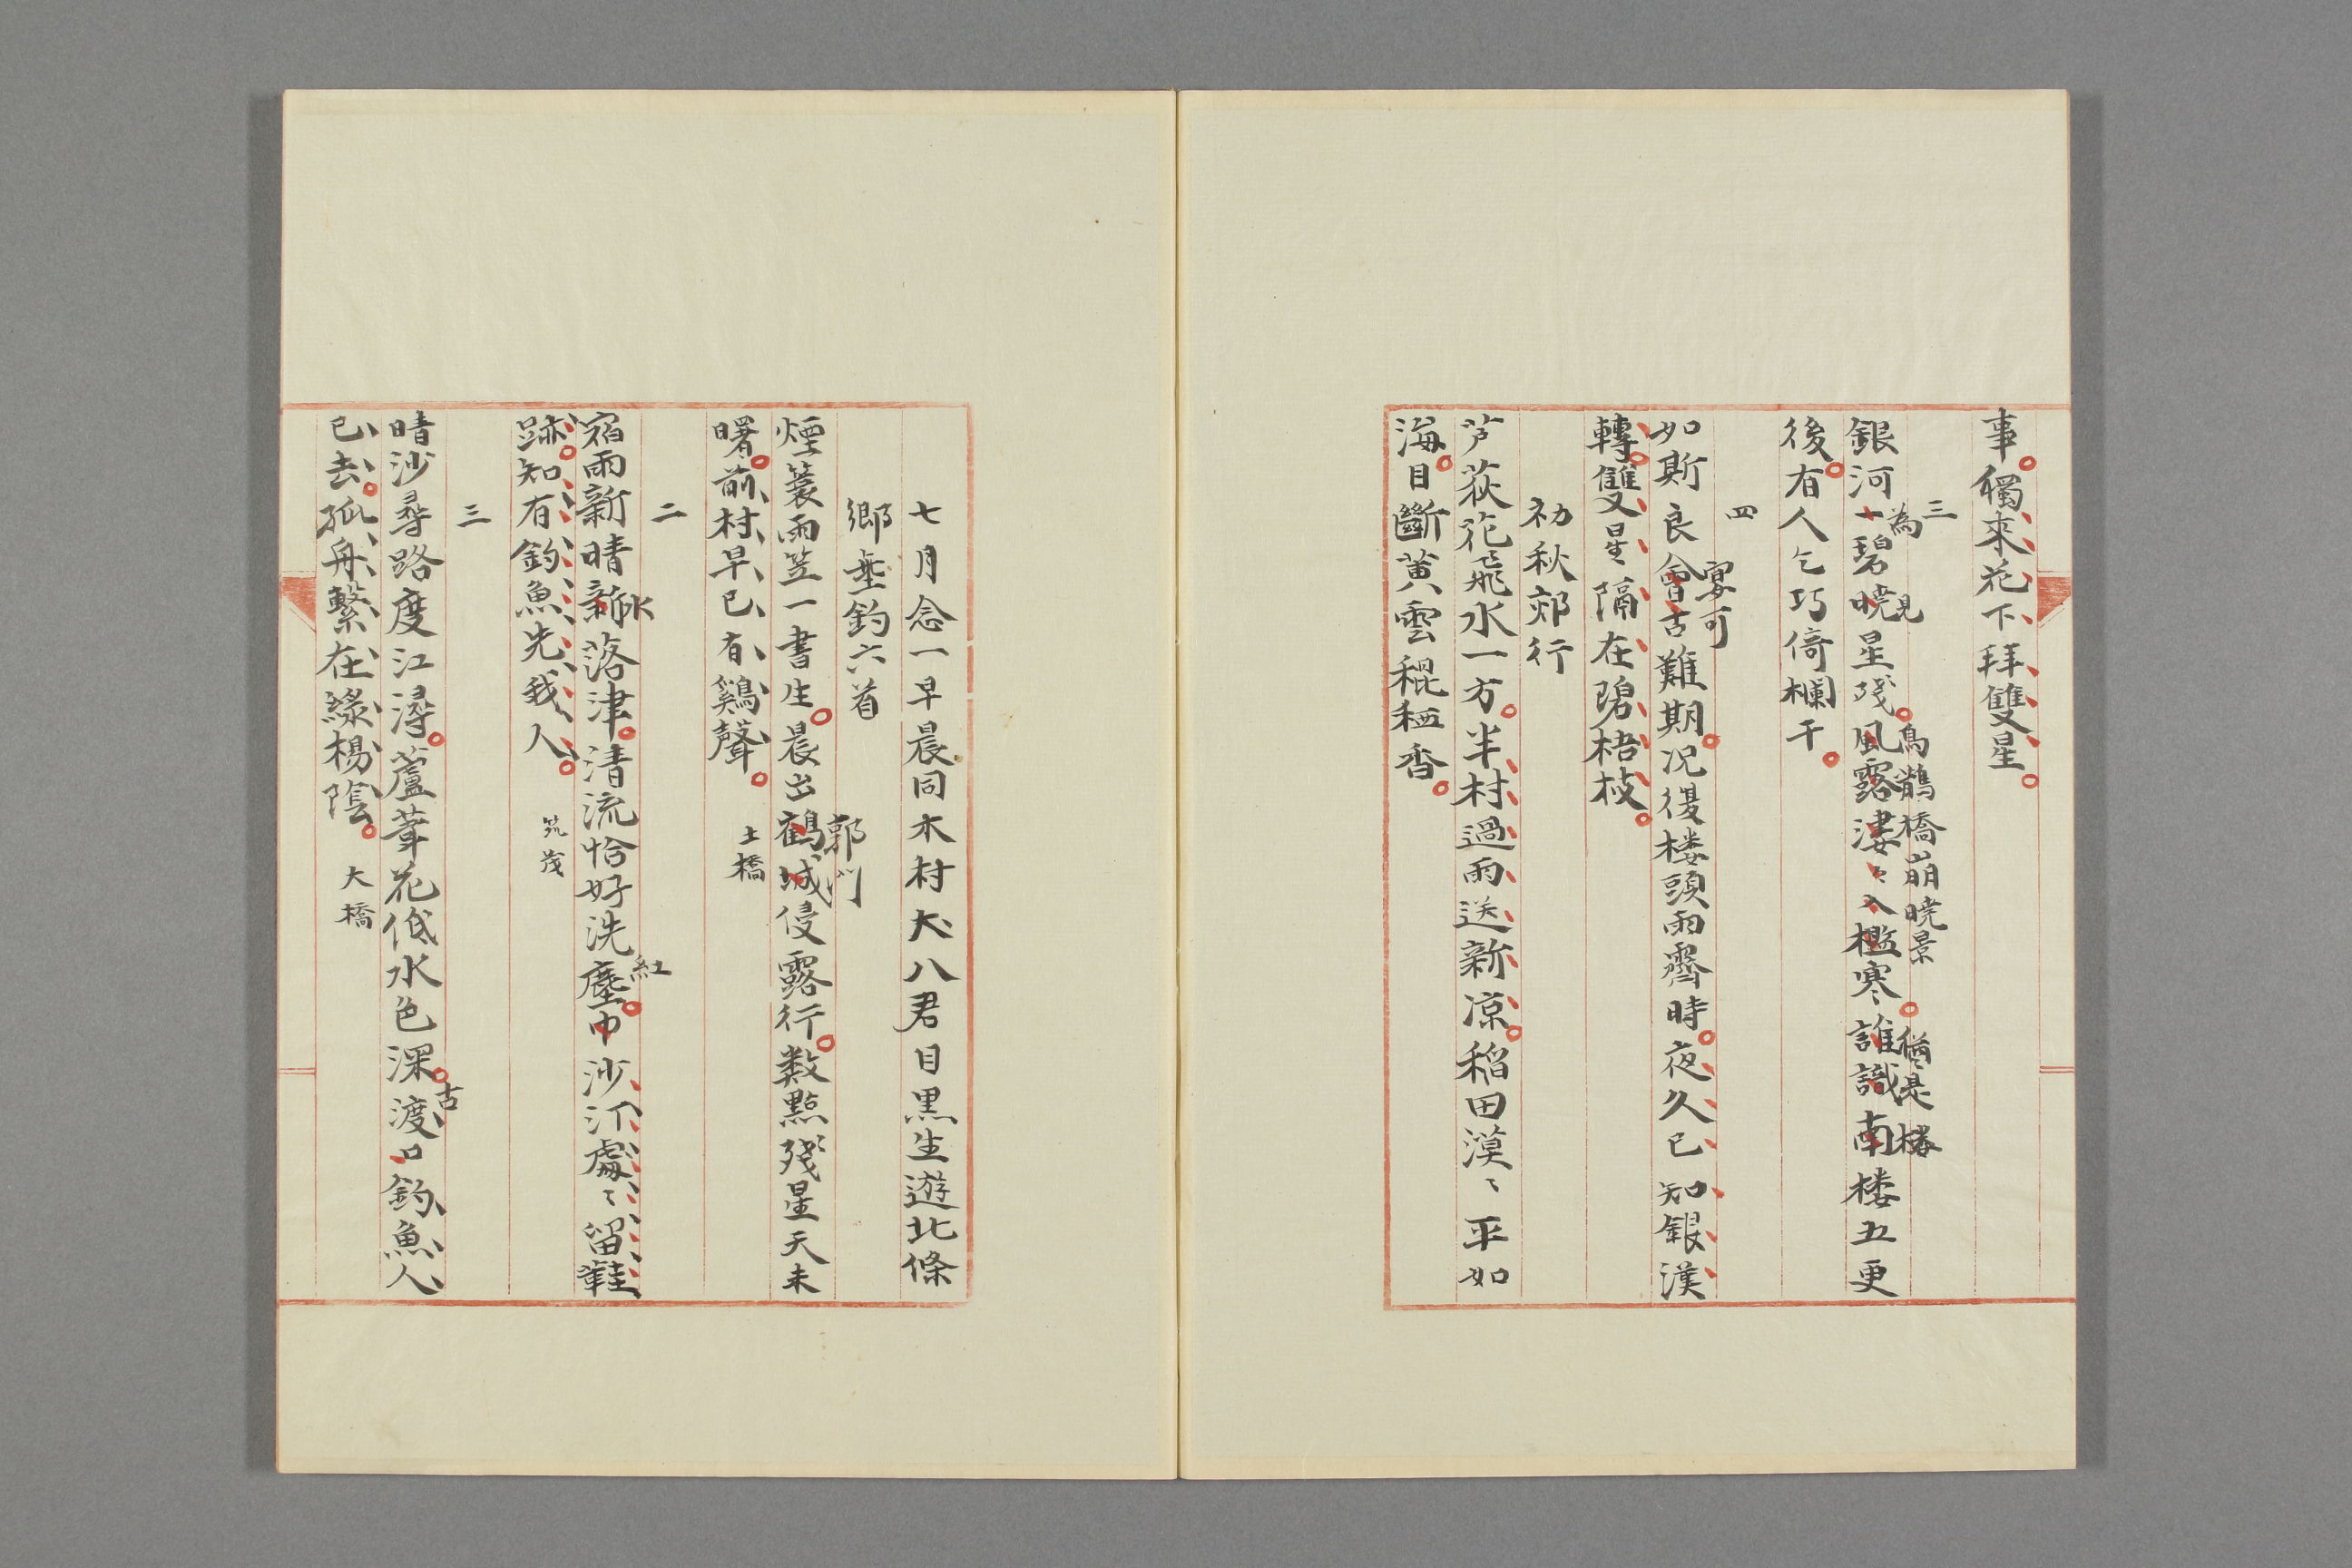 事獨來花下拜雙星
三
銀河一碧曉星殘風露凄〻入檻寒誰識南楼五更
為見烏鵲橋崩曉景猶是楼
後有人乞巧倚欄干
四
如斯良會古難期况復楼頭雨霽時夜久已知銀漢
宴可
轉雙星隔在碧梧枝
初秋郊行
芦荻花飛水一方半村過雨送新凉稻田漠〻平如
海目斷黄雲䆉稏香
七月念一早晨同木村犬八君目黒生遊北條
鄉垂釣六首
煙蓑雨笠一書生晨出鶴城侵露行数點殘星天未
郭門
曙前村早已有鷄聲
土橋
二
宿雨新晴新落津清流恰好洗塵巾沙汀處〻留鞋
水紅
跡知有釣魚先我人
筑茂
三
晴沙尋路度江潯蘆葦花低水色深渡口釣魚人
古
已去孤舟繫在綠楊陰
大橋